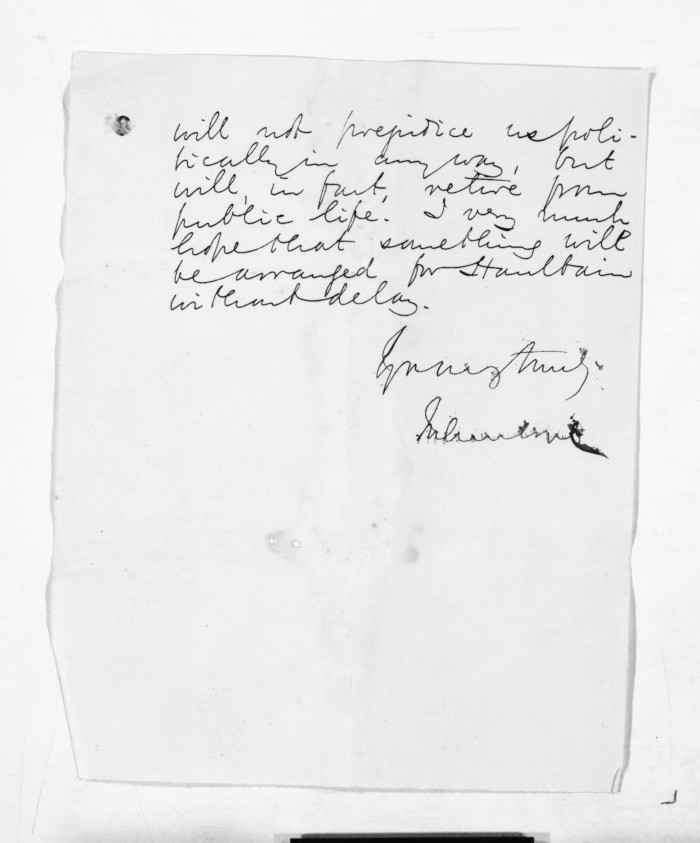 will not prejidice us poli-
tically in any way, but
will, in fact, retire from
public life. I very much
hope that something will
be arranged for Haultain
without delay.
Yours truly